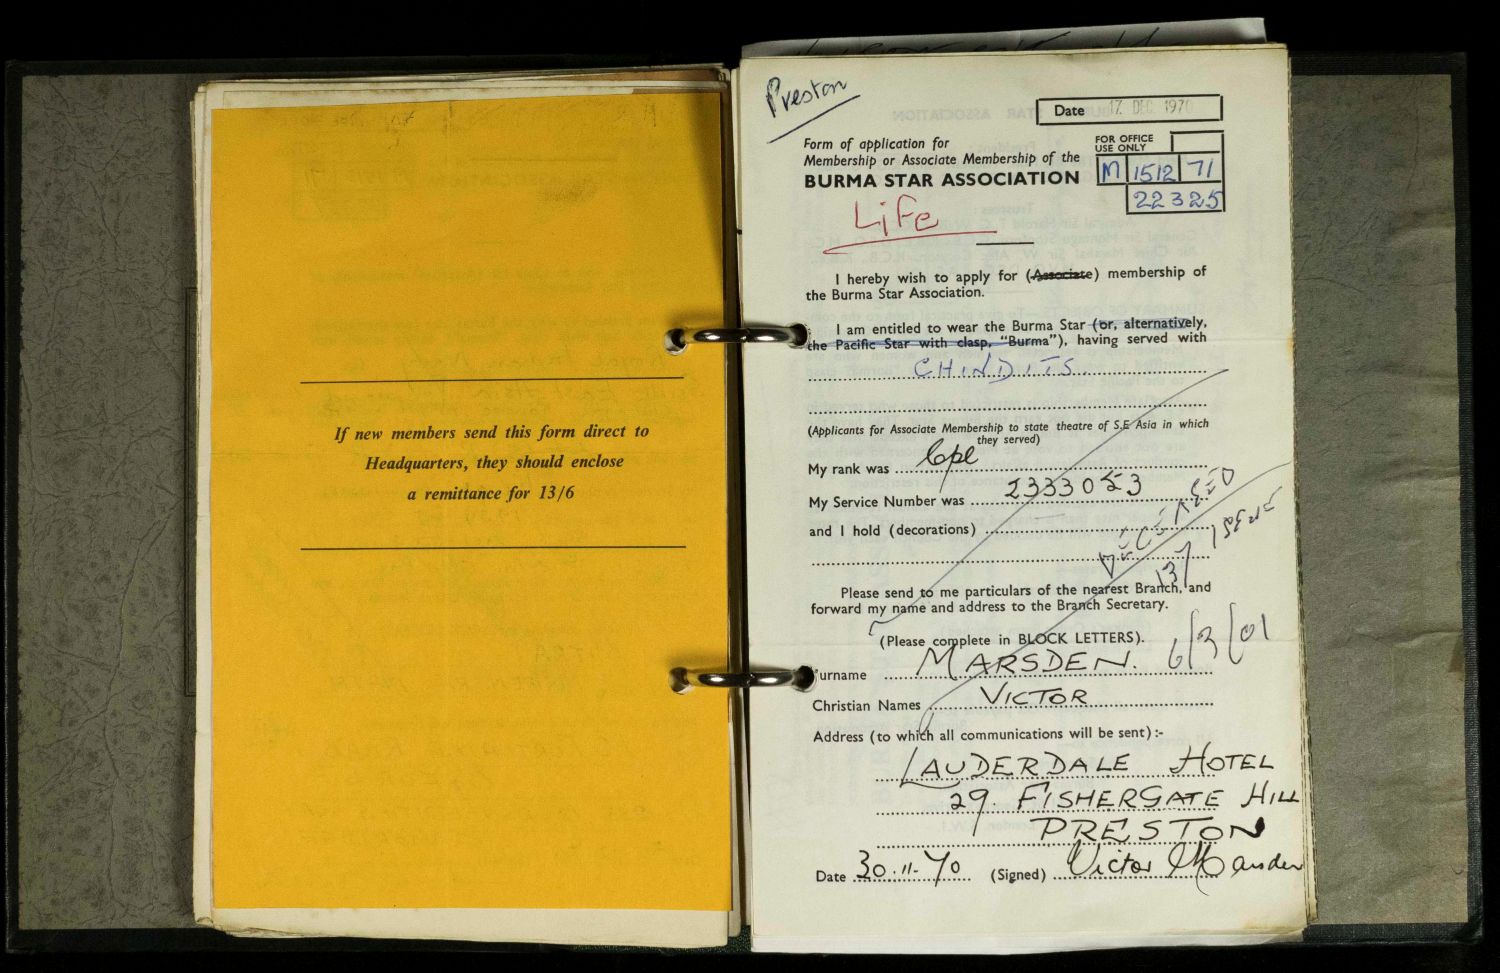 If new members send this form direct to
Headquarters, they should enclose
a remittance for 13/6
Preston
Date 17 DEC 1970
Form of application for
Membership or Associate Membership of the
BURMA STAR ASSOCIATION
FOR OFFICE
USE ONLY
M 1512 71
22325
Life
I hereby wish to apply for (Associate) membership of
the Burma Star Association.
I am entitled to wear the Burma Star (or, alternatively,
the Pacific Star with clasp, "Burma"), having served with
CHINDITS.
(Applicants for Associate Membership to state theatre of S.E Asia in which
they served)
My rank was Cpl
My Service Number was 2333053
and I hold (decorations)
DECEASED
Please send to me particulars of the nearest Branch, and
forward my name and address to the Branch Secretary.
(Please complete in BLOCK LETTERS).
6/3/01
Surname MARSDEN.
Christian Names VICTOR
Address (to which all communications will be sent):-
LAUDERDALE HOTEL
29 FISHERGATE HILL
PRESTON
Date 30.11.70 (Signed) Victor Marsden